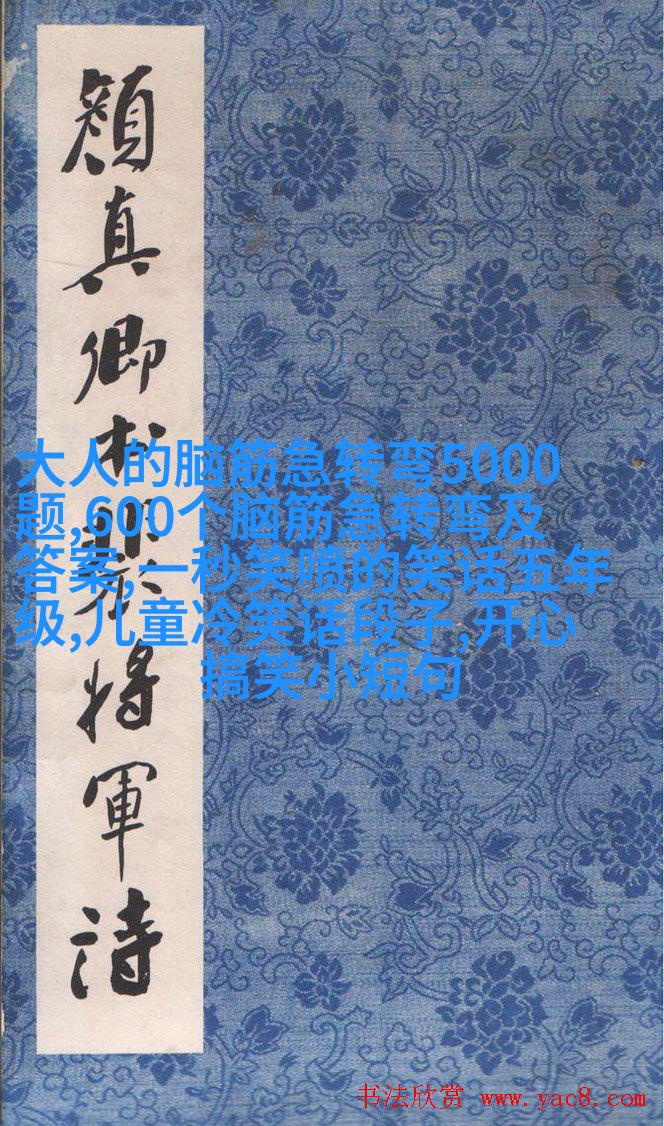 顔真卿裴将軍詩
大人的脑筋急转弯5000
题,600个脑筋急转弯及
答案,一秒笑喷的笑话五年
级,儿童冷笑话段子,开心
搞笑小短句
书法欣赏 www.yac8.com